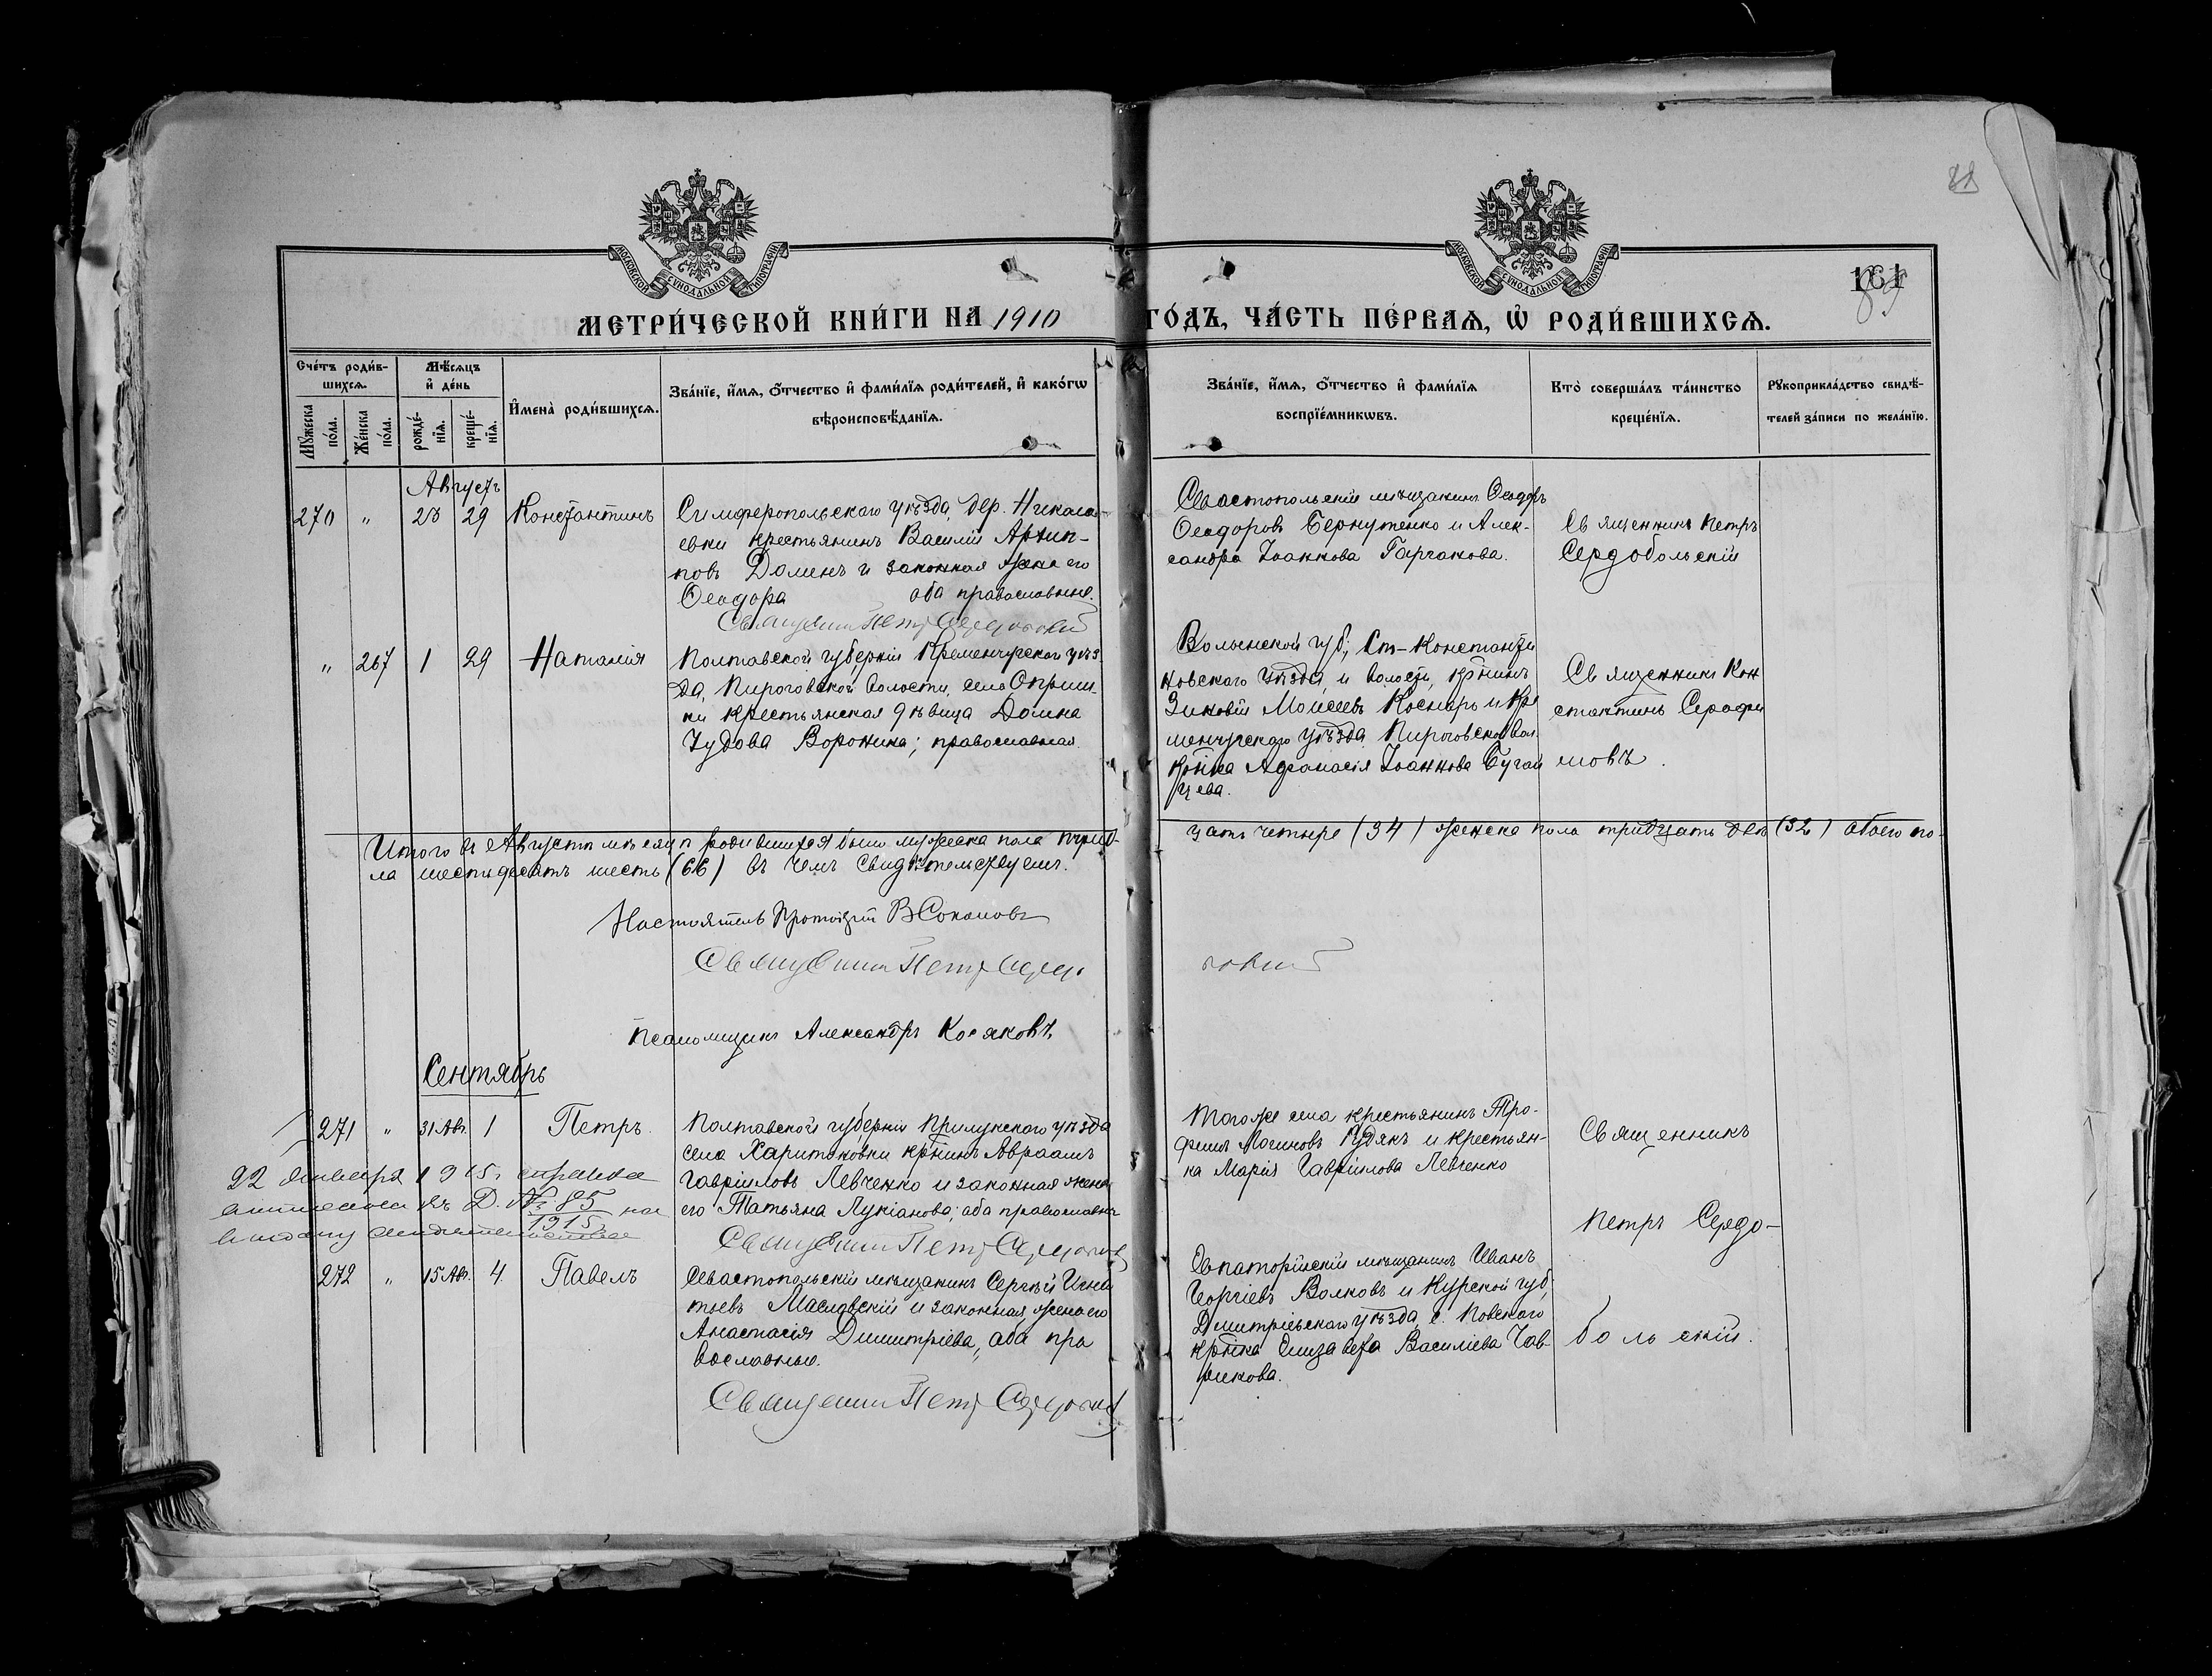 88
МОСКОВСКОЙ СѴНОДАЛЬНОЙ ТИПОГРАФІИ
МОСКОВСКОЙ СѴНОДАЛЬНОЙ ТИПОГРАФІИ
161
89
МЕТРИ́ЧЕСКОЙ КНИ́ГИ НА 1910 ГО́ДЪ, ЧА́СТЬ ПЕ́РВАѦ, Ѡ҆ РОДИ́ВШИХСѦ.
Сче́тъ роди́в-
шихсѧ.
Мꙋ́жеска по́ла.
Же́нска по́ла.
Мѣ́сѧцъ
и҆ де́нь
рожде́-
нїѧ.
креще́-
нїѧ.
И҆мена̀ роди́вшихсѧ.
Зва́нїе, и҆́мѧ, ѻ҆́тчество и҆ фами́лїѧ роди́телей, и҆ како́гѡ
вѣроисповѣ́данїѧ.
Зва́нїе, и҆́мѧ, ѻ҆́тчество и҆ фами́лїѧ
воспрїе́мникѡвъ.
Кто̀ соверша́лъ та́инство
креще́нїѧ.
Рꙋкоприкла́дство свидѣ́-
телей за́писи по жела́нїю.
Августъ
270 " 28 29 Константинъ
Симферопольскаго уѣзда, дер. Никола-
евки крестьянинъ Василій Архип-
повъ Доменъ и законная жена его
Ѳеодора оба православные.
Священникъ Петръ Сердобольскій
Севастопольскій мѣщанинъ Ѳеодоръ
Ѳеодоровъ Бернутенко и Алек-
сандра Іоаннова Гаргакова.
Священникъ Петръ
Сердобольскій
" 267 1 29 Наталія
Полтавской губерніи Кременчугскаго уѣз-
да, Пироговской волости, села Оприш-
ки крестьянская дѣвица Домна
Іудова Воронина; православная.
Волынской губ., Ст-Константи
новскаго уѣзда, и волости, кр͞нинъ
Зиновій Моисеевъ Коснаръ и Кре
менчугскаго уѣзда Пироговской вол.
кр͞нка Аѳанасія Іоаннова Бугай
цева.
Священникъ Кон
стантинъ Серафи
мовъ.
Итого въ Августѣ мѣсяцѣ родившихся было мужеска пола трид-
цать четыре (34) женска пола тридцать двѣ (32) обоего по-
ла шестьдесятъ шесть (66) въ чемъ свидѣтельствуемъ.
Настоятель Протоіерей В Соколовъ
Священникъ Петръ Сердобольскій
Псаломщикъ Александръ Косяковъ
Сентябрь
271 " 31 Авг. 1 Петръ
Полтавской губерніи Прилукскаго уѣзда
села Харитоновки кр͞нинъ Авраамъ
Гавріиловъ Левченко и законная жена
его Татьяна Лукіанова; оба православные
Священникъ Петръ Сердобольскій
Тогоже села крестьянинъ Тро-
фимъ Логиновъ Гудякъ и крестьян-
ка Марія Гавріилова Левченко
Священникъ
22 Января 1915 г. справка
въ Д. № 85 на
1915 г.
выдачу свидѣтельства
272 " 15 Авг. 4 Павелъ
Севастопольскій мѣщанинъ Сергѣй Игна
тьевъ Маславскій и законная жена его
Анастасія Димитріева, оба пра
вославные.
Священникъ Петръ Сердобольскій
Евпаторійскій мѣщанинъ Иванъ
Георгіевъ Волковъ и Курской губ,
Дмитріевскаго уѣзда, с. Повского
кр͞нка Елизавета Василіева Гав-
рикова.
Петръ Сердо-
больскій.